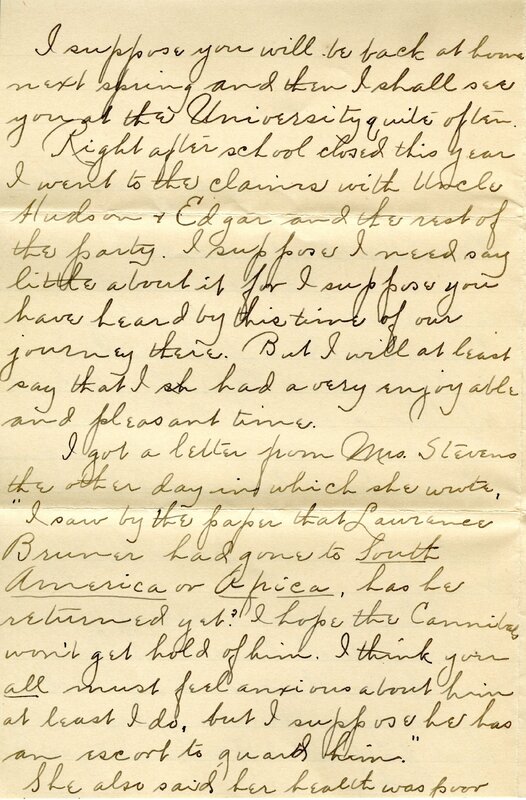 I suppose you will be back at home
next spring and then I shall see
you at the University quite often.
Right after school closed this year
I went to the claims with Uncle
Hudson & Edgar and the rest of
the party. I suppose I need say
little about it for I suppose you
have heard by this time of our
journey there. But I will at least
say that I sh had a very enjoyable
and pleasant time.
I got a letter from Mrs. Stevens
the other day in which she wrote,
"I saw by the paper that Lawrence
Bruner had gone to South
America or Africa, has he
returned yet? I hope the Cannibals
won't get hold of him. I think you
all must feel anxious about him
at least I do, but I suppose he has
an escort to guard him."
She also said her health was poor